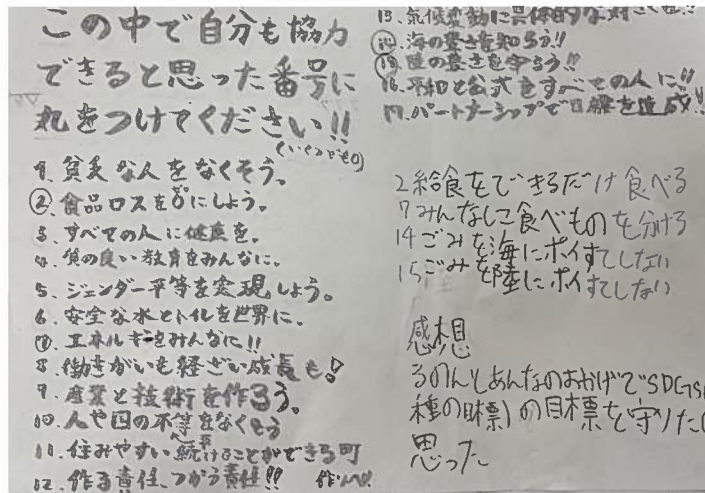 この中で自分も協力
できると思った番号に
丸をつけてください!!
(いくつでもO)
1. 貧乏な人をなくそう。
②.食品ロスを0にしよう。
3. すべての人に健康を。
4. 質の良い教育をみんなに。
5. ジェンダー平等を実現しよう。
6. 安全な水とトイレを世界に。
⑦.エネルギーをみんなに!!
8. 働きがいも経ざい成長も!
9. 産業と技術を作ろう。
10. 人や国の不等をなくそう
平
11. 住みやすい続けることができる町
12. 作る責任、つかう責任!! 作ソベリ!
13. 気候変動に具体的な対さくを!!
⑭.海の豊さを知ろう!!
⑮.陸の豊さを守ろう!!
16. 平和と公式をすべての人に!!
17. パートナーシップで目標を達成!!
2給食をできるだけ食べる
7みんなしこ食べものを分ける
14ごみを海にポイすてしない
15ごみを陸にポイすてしない
感想
ろのんとあんなのおかげでSDGS
種の目標)の目標を守りた
思った